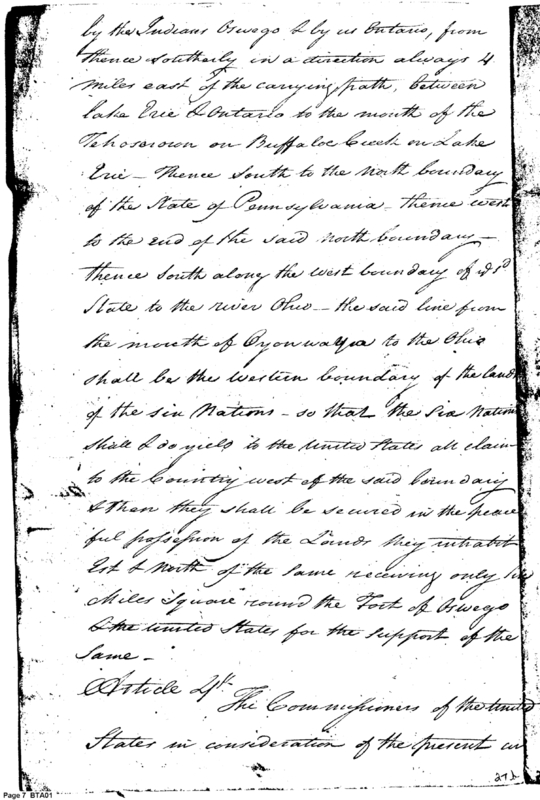 by the Indians Oswego & by us Ontario, from
thence southerly in a direction always 4
miles east of the carrying path, between
lake Erie & Ontario to the mouth of the
Tehoseroron on Buffaloe Creek on Lake
Erie – thence South to the north boundary
of the State of Pennsylvania – thence west
to the end of the said north boundary –
thence South along the west boundary of ye sd
State to the river Ohio – the said line from
the mouth of Oyonwayea to the Ohio
shall be the western boundary of the lands
of the six Nations – so that the Six Nations
shall & do yield to the United States all claim
to the Country west of the said boundary
& than they shall be secured in the peace
ful possession of the Lands they inhabit
Est & North of the same receiving only six
Miles Square round the Fort of Oswego
& the united States for the support of the
Same –
Article 4th
The Commissioners of the united
States in consideration of the present
Page 7 BTA01